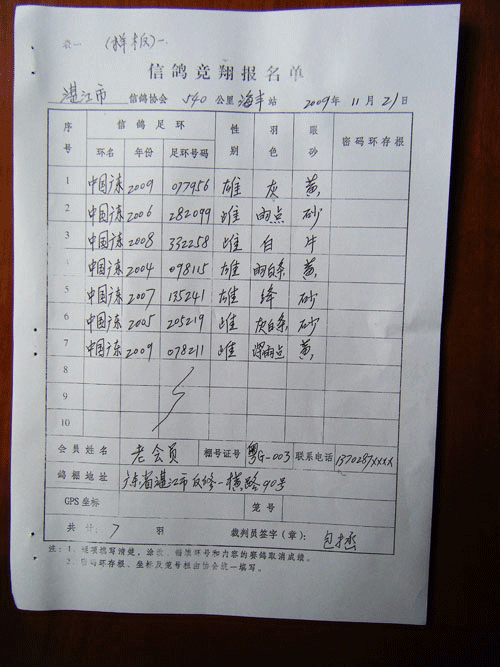 表一 (样板)一
信鸽竞翔报名单
湛江市 信鸽协会 540 公里 海丰 站 2009 年 11 月 21 日
序号 信鸽足环 性别 羽色 眼砂 密码环存根
环名 年份 足环号码
1 中国广东 2009 077956 雄 灰 黄
2 中国广东 2006 282099 雌 雨点 砂
3 中国广东 2008 332258 雌 白 牛
4 中国广东 2004 098115 雄 雨白条 黄
5 中国广东 2007 135241 雄 绛 砂
6 中国广东 2005 205219 雌 灰白条 砂
7 中国广东 2009 078211 雌 雨点 黄
8
9
10
会员姓名 老会员 棚号证号 粤G-003 联系电话 1370287xxxx
鸽棚地址 广东省湛江市 一横路90号
GPS坐标 笼号
共计: 7 羽 裁判员签字(章): 包拯
注: 1、逐项填写清楚, 涂改、错漏环号和内容的赛鸽取消成绩。
2、密码环存根、坐标及笼号栏由协会统一填写。